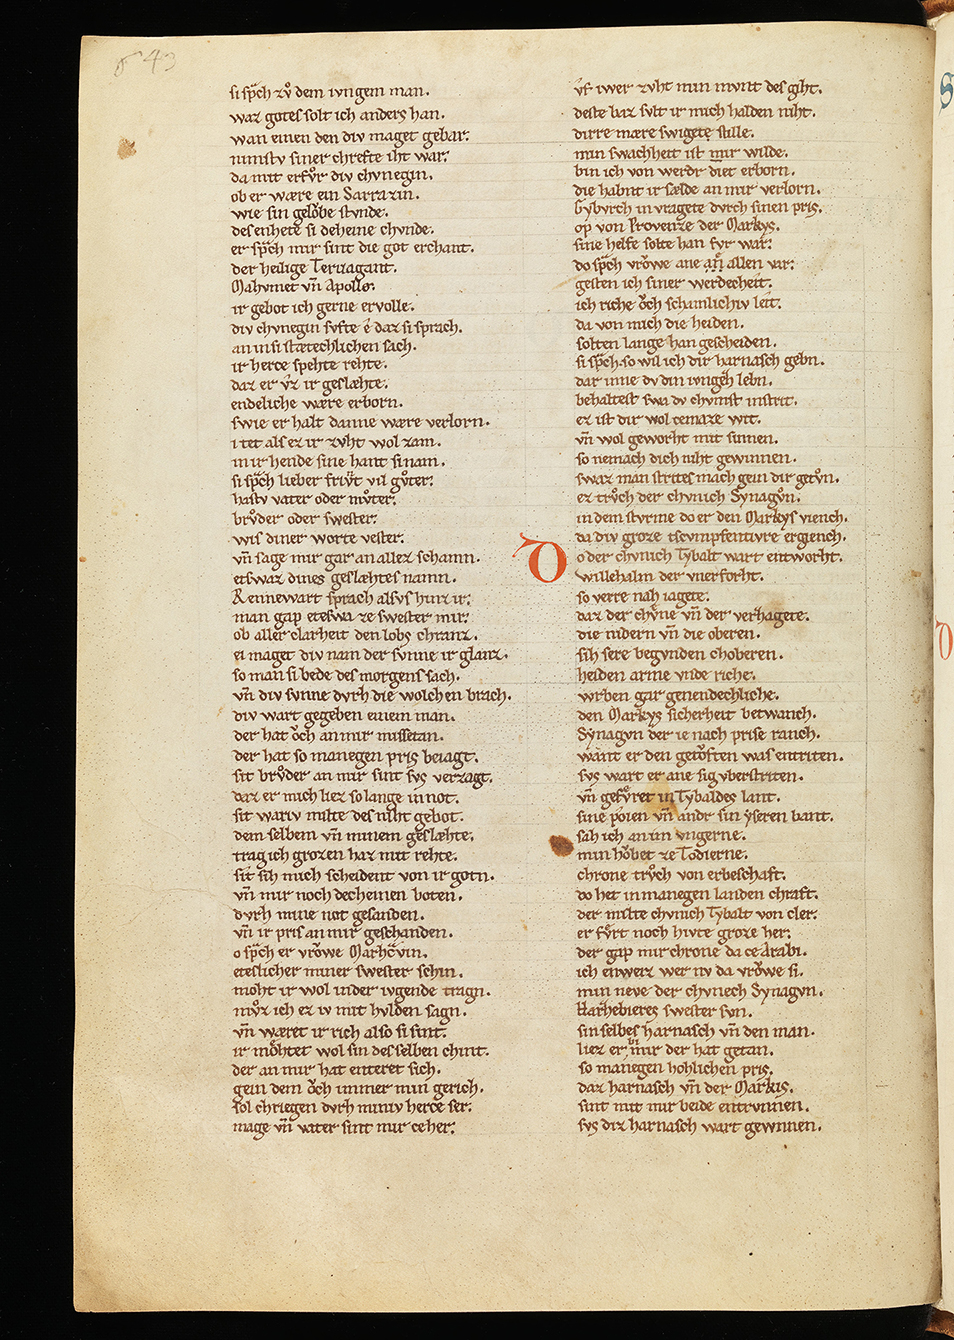 643
si sp̄ch zv̊ dem ivngem man.
waz gotes solt ich anders han.
wan einen den div maget gebar:
nimstv siner chrefte iht war:
da mit erfv̊r div chvnegin.
ob er wære ein Sarrazin.
wie sin gelo̊be stvnde.
des enhete si deheine chvnde.
er sp̄ch mir sint die got erchant.
der heilige Teruagant.
Mahvmet vn̄ Apollo:
ir gebot ich gerne ervolle.
div chvnegin svfte e daz si sprach.
an in si stætechlichen sach.
ir herce spehte rehte.
daz er v̊z ir geslæhte.
endeliche wære erborn.
swie er halt danne wære verlorn.
i tet als ez ir zvht wol zam.
in ir hende sine hant si nam.
si sp̄ch lieber frivͤt vil gv̊ter:
hastv vater oder mv̊ter:
brv̊der oder swester:
wis diner worte vester:
vn̄ sage mir gar an allez schamn.
etswaz dines geslæhtes namn.
Rennewart sprach alsvs hinz ir:
man gap eteswa ze swester mir:
ob aller clarheit den lobs chranz.
ei maget div nam der svnne ir glanz.
so man si bede des morgens sach.
vn̄ div svnne dvrh die wolchen brach.
div wart gegeben einem man.
der hat o̊ch an mir missetan.
der hat so manegen pris beiagt.
sit brv̊der an mir sint svs verzagt.
daz er mich liez so lange in not.
sit wariv milte des niht gebot.
dem selbem vn̄ minem geslæhte.
trag ich grozen haz mit rehte.
sit sih mich scheident von ir gotn.
vn̄ mir noch decheinen boten.
dvrh mine not gesanden.
vn̄ ir pris an mir geschanden.
o sp̄ch er vro̊we Marhc̄vin.
eteslicher miner swester schin.
moht ir wol inder ivgende tragn.
mv̊z ich ez iv mit hvlden sagn.
vn̄ wæret ir rich also si sint.
ir mo̊htet wol sin des selben chint.
der an mir hat enteret sich.
gein dem o̊ch immer min gerich.
sol chriegen dvrh miniv herce ser:
mage vn̄ vater sint mir ceher:
vf iwer zvht min mvnt des giht.
deste baz svlt ir mich halden niht.
dirre mære swigete stille.
min swachheit ist mir wilde.
bin ich von werdr diet erborn.
die habnt ir sælde an mir verlorn.
Gybvrch in vragete dvrch sinen pris.
op von Provenze der Markys.
sine helfe solte han fvr war:
do sp̄ch vro̊we ane allen var:
gesten ich siner werdecheit.
ich riche o̊ch schamlichiv leit.
da von mich die heiden.
solten lange han gescheiden.
si sp̄ch so wil ich dir harnasch gebn.
dar inne dv din ivngeh lebn.
behaltest swa dv chvmst instrit.
ez ist dir wol cemaze wit.
vn̄ wol geworht mit sinnen.
so nemach dich niht gewinnen.
swaz man strites mach gein dir getv̊n.
ez trv̊ch der chvnich Synagv̊n.
in dem stvrme do er den Markys viench.
da div groze tscvmpfentivre ergiench.
Do der chvnich Tybalt wart entworht.
willehalm der vnerforht.
so verre nah iagete.
daz der chv̊ne vn̄ der verhagete.
die nidern vn̄ die oberen.
sih sere begvnden choberen.
heiden arme vnde riche.
wrben gar genendechliche.
den Markys sicherheit betwanch.
Synagvn der ie nach prise ranch.
want er den geto̊ften was entriten.
svs wart er ane sig vberstriten.
vn̄ gefv̊ret in Tybaldes lant.
sine poien vn̄ andr sin yseren bant.
sah ich an im vngerne.
min ho̊bet ze Todierne.
chrone trv̊ch von erbeschaft.
do het in manegen landen chraft.
der milte chvnich Tybalt von cler:
er fv̊rt noch hivte groze her:
der gap mir chrone da ce Arabi.
ich enweiz wer nv da vro̊we si.
min neve der chvnech Synagvn.
Harhebieres swester svn.
sin selbes harnasch vn̄ den man.
liez er mir der hat getan.
so manegen hohlichen pris.
daz harnasch vn̄ der Markis.
sint mit mir beide entrvnnen.
svs diz harnasch wart gewnnen.